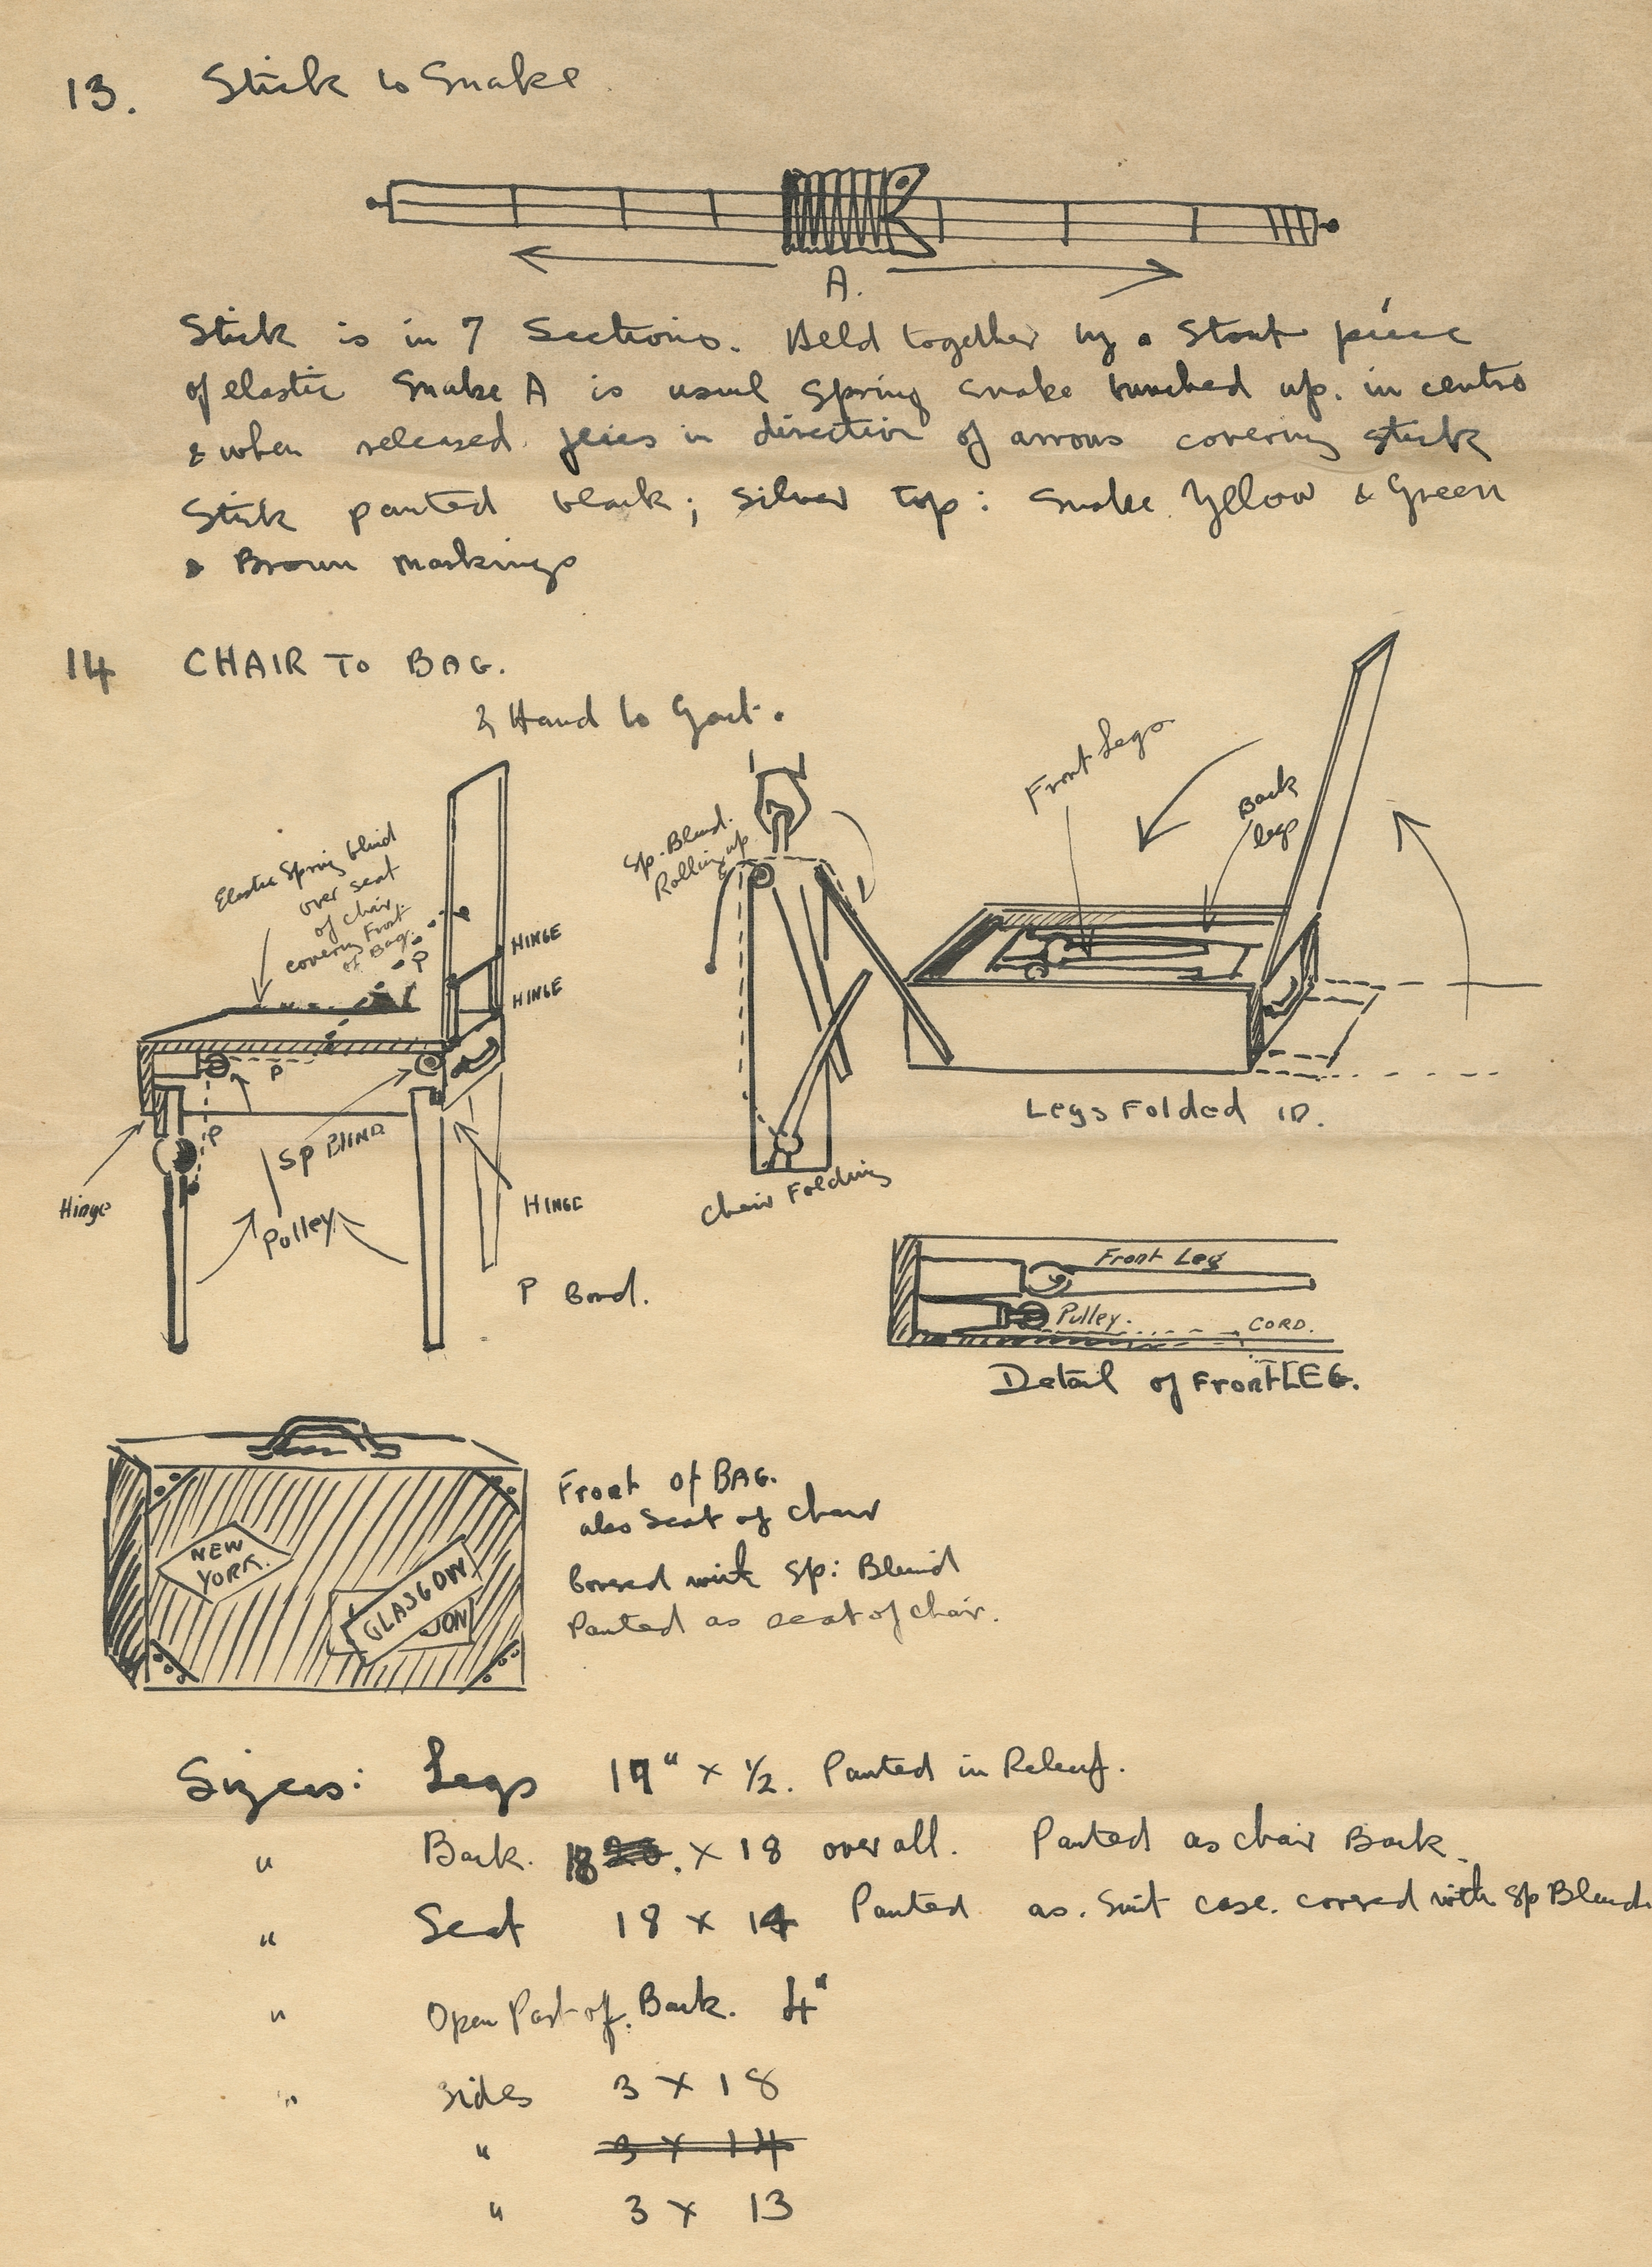 13. Stick to Snake
A.
Stick is in 7 Sections. Held together by a Stout piece
of elastic Snake A is usual Spring Snake bunched up. in centre
& when released flies in direction of arrows covering stick
Stick painted black; silver top: Snake Yellow & Green
& Brown markings
14 CHAIR TO BAG.
& Hand to
Elastic Spring blind
over seat
of chair
covering Front
of Bag.
P
HINGE
HINGE
P
P
SP BLIND
Hinge
Pulley
HINGE
P Cord.
Sp. Blind.
Rolling up
Chair Folding
Front Legs
Back
legs
Legs Folded in.
Front Leg
Pulley.
CORD.
Detail of Front LEG.
NEW
YORK.
GLASGOW
DON
Front of BAG.
also Seat of chair
Covered with Sp: Blind
Painted as seat of chair.
Sizes: Legs 17" x 1/2. Painted in Relief.
" Back. 18 x 18 over all. Painted as chair Back.
" Seat 18 x 14 Painted as. Suit case. covered with Sp Blind
" Open Part of. Back. 4"
" Sides 3 x 18
" 3 x 14
" 3 x 13